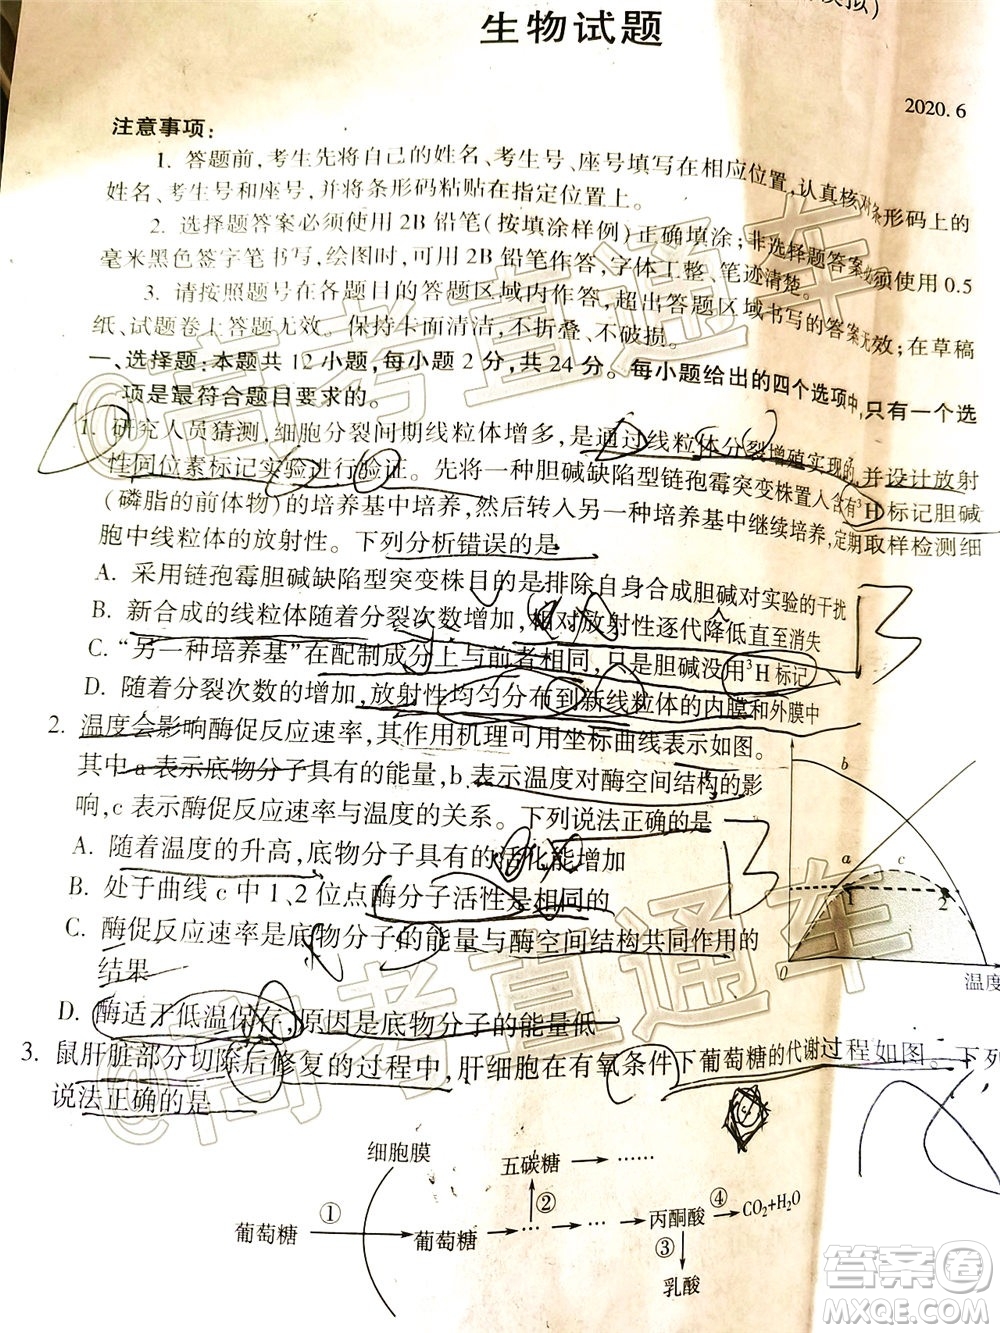 模拟)
生物试题
2020.6
注意事项：
1. 答题前,考生先将自己的姓名、考生号、座号填写在相应位置,认真核对条形码上的
姓名、考生号和座号,并将条形码粘贴在指定位置上。
2. 选择题答案必须使用2B铅笔(按填涂样例)正确填涂；非选择题答案必须使用0.5
毫米黑色签字笔书写,绘图时,可用2B铅笔作答,字体工整、笔迹清楚。
3. 请按照题号在各题目的答题区域内作答,超出答题区域书写的答案无效；在草稿
纸、试题卷上答题无效。保持卡面清洁,不折叠、不破损。
一、选择题：本题共12小题,每小题2分,共24分。每小题给出的四个选项中,只有一个选
项是最符合题目要求的。
1. 研究人员猜测,细胞分裂间期线粒体增多,是通过线粒体分裂增殖实现的,并设计放射
性同位素标记实验进行验证。先将一种胆碱缺陷型链孢霉突变株置入含有³H标记胆碱
(磷脂的前体物)的培养基中培养,然后转入另一种培养基中继续培养,定期取样检测细
胞中线粒体的放射性。下列分析错误的是
A. 采用链孢霉胆碱缺陷型突变株目的是排除自身合成胆碱对实验的干扰
B. 新合成的线粒体随着分裂次数增加,相对放射性逐代降低直至消失
C. “另一种培养基”在配制成分上与前者相同,只是胆碱没用³H标记
D. 随着分裂次数的增加,放射性均匀分布到新线粒体的内膜和外膜中
2. 温度会影响酶促反应速率,其作用机理可用坐标曲线表示如图。
其中a表示底物分子具有的能量,b表示温度对酶空间结构的影
响,c表示酶促反应速率与温度的关系。下列说法正确的是
A. 随着温度的升高,底物分子具有的活化能增加
B. 处于曲线c中1、2位点酶分子活性是相同的
C. 酶促反应速率是底物分子的能量与酶空间结构共同作用的
结果
D. 酶适于低温保存,原因是底物分子的能量低
b
a
c
1
2
0
温度
3. 鼠肝脏部分切除后修复的过程中,肝细胞在有氧条件下葡萄糖的代谢过程如图。下列
说法正确的是
细胞膜
五碳糖 → ……
②
葡萄糖 ① 葡萄糖 → … → … → 丙酮酸 ④ CO₂+H₂O
③
乳酸
@高考直通车
@高考直通车
答案圈
MXQE.COM